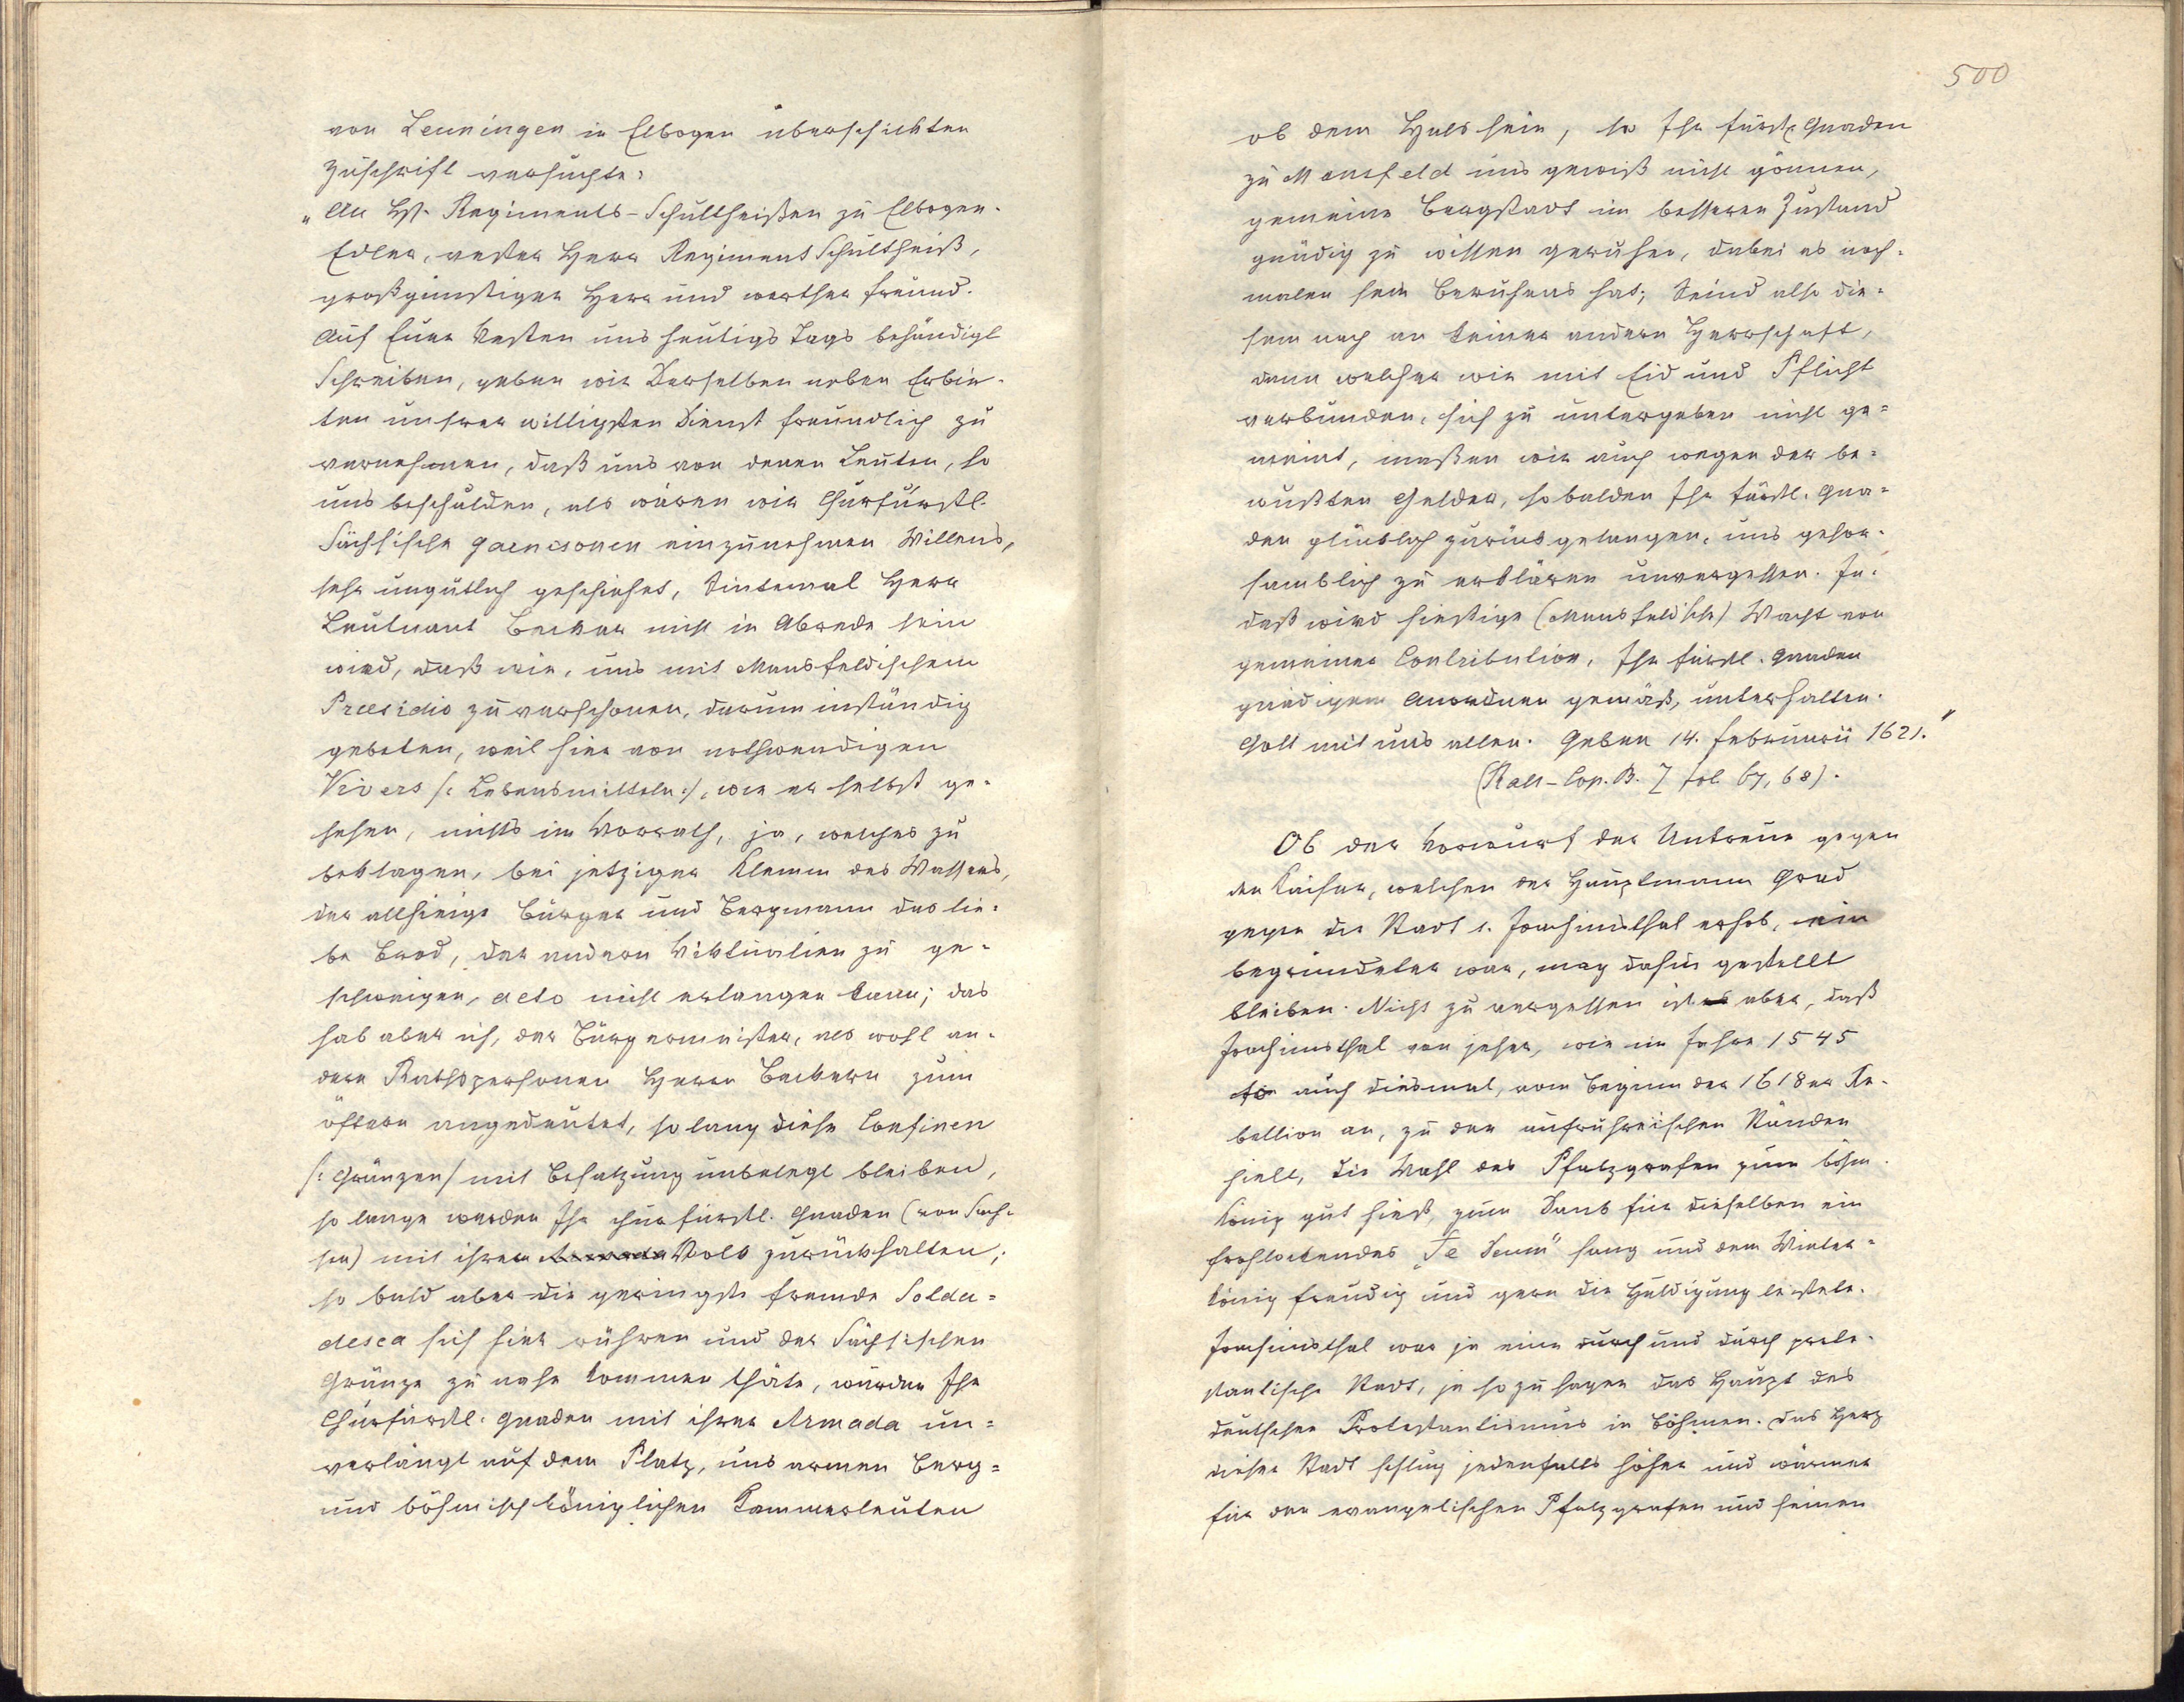 von Leuningen in Elbogen überschickten
Zuschrift versuchte:
„An H. Regiments-Schultheißen zu Elbogen.
Edler, vester Herr Regiments Schultheiß,
großgünstiger Herr und werther Freund.
Auf Euer Vesten uns heutigs Tags behändigt
Schreiben, geben wir Derselben neben Erbie-
ten unsrer willigsten Dienst freundlich zu
vernehmen, daß uns von denen Leuten, so
uns beschulden, als wären wir Churfürstl.
Sächsische garnisonen einzunehmen Willens,
sehr ungütlich geschiehet, Sintemal Herr
Leutnant Becker nicht in Abrede sein
wird, daß wir, uns mit Mansfeldischem
Praesidio zu verschonen, darum inständig
gebeten, weil hier von nothwendigen
Vivers /: Lebensmitteln :/, wie er selbst ge-
sehen, nichts im Vorrath, ja, welches zu
beklagen, bei jetziger Klemm des Wassers,
der allhiesige Bürger und Bergmann das lie-
be Brod, der andern Viktualien zu ge-
schweigen, deto nicht erlangen kann; das
hab aber ich, der Bürgermeister, als wohl an-
dere Rathspersonen Herrn Beckern zum
öftern angedeutet, so lang diese Confinen
/: Gränzen / mit Besatzung unbelegt bleiben,
so lange werden Ihr churfürstl. Gnaden (von Sach-
sen) mit ihrem Volk zurückhalten;
so bald aber die geringste fremde Solda-
desca sich hier rühren und der Sächsischen
Gränze zu nahe kommen thäte, würden Ihr
Churfürstl. Gnaden mit ihrer Armada un-
verlängt auf dem Platz, uns armen Berg-
und böhmisch königlichen Kammerleuten
500
ob dem Hals sein, so Ihr fürstl. Gnaden
zu Mansfeld uns gewiß nicht gönnen,
gemeine Bergstadt im besseren Zustand
gnädig zu wissen geruhen, dabei es noch-
malen sein Beruhens hat; Seind also die-
sem nach an keiner andern Herrschaft,
dann welcher wir mit Eid und Pflicht
verbunden, sich zu untergeben nicht ge-
meint, maßen wir auch wegen der be-
wußten Gelder, sobalden Ihr fürstl. Gna-
den glücklich zurück gelangen, uns gehor-
samblich zu erklären unvergessen. In-
deß wird hiesige (Mansfeldische) Wacht von
gemeiner Contribution, Ihr fürstl. Gnaden
gnädigem Anordnen gemäß, unterhalten.
Gott mit uns allen. Geben 14. Februarii 1621.“
(Rats-Cop. B. Z fol 67, 68).
Ob der Vorwurf der Untreue gegen
den Kaiser, welchen der Hauptmann Grad
gegen die Stadt s. Joachimsthal erhob, ein
begründeter war, mag dahin gestellt
bleiben. Nicht zu vergessen ist aber, daß
Joachimsthal von jeher, wie im Jahre 1545
so auch diesmal, vom Beginn der 1618er Re-
bellion an, zu den aufrührerischen Ständen
hielt, die Wahl des Pfalzgrafen zum böhm.
König gut hieß, zum Dank für dieselben ein
frohlockendes „Te Deum“ sang und dem Winter-
könig freudig und gern die Huldigung leistete.
Joachimsthal war ja eine durch und durch prote-
stantische Stadt, ja so zu sagen das Haupt des
deutschen Protestantismus in Böhmen. Das Herz
dieser Stadt schlug jedenfalls höher und wärmer
für den evangelischen Pfalzgrafen und seinen